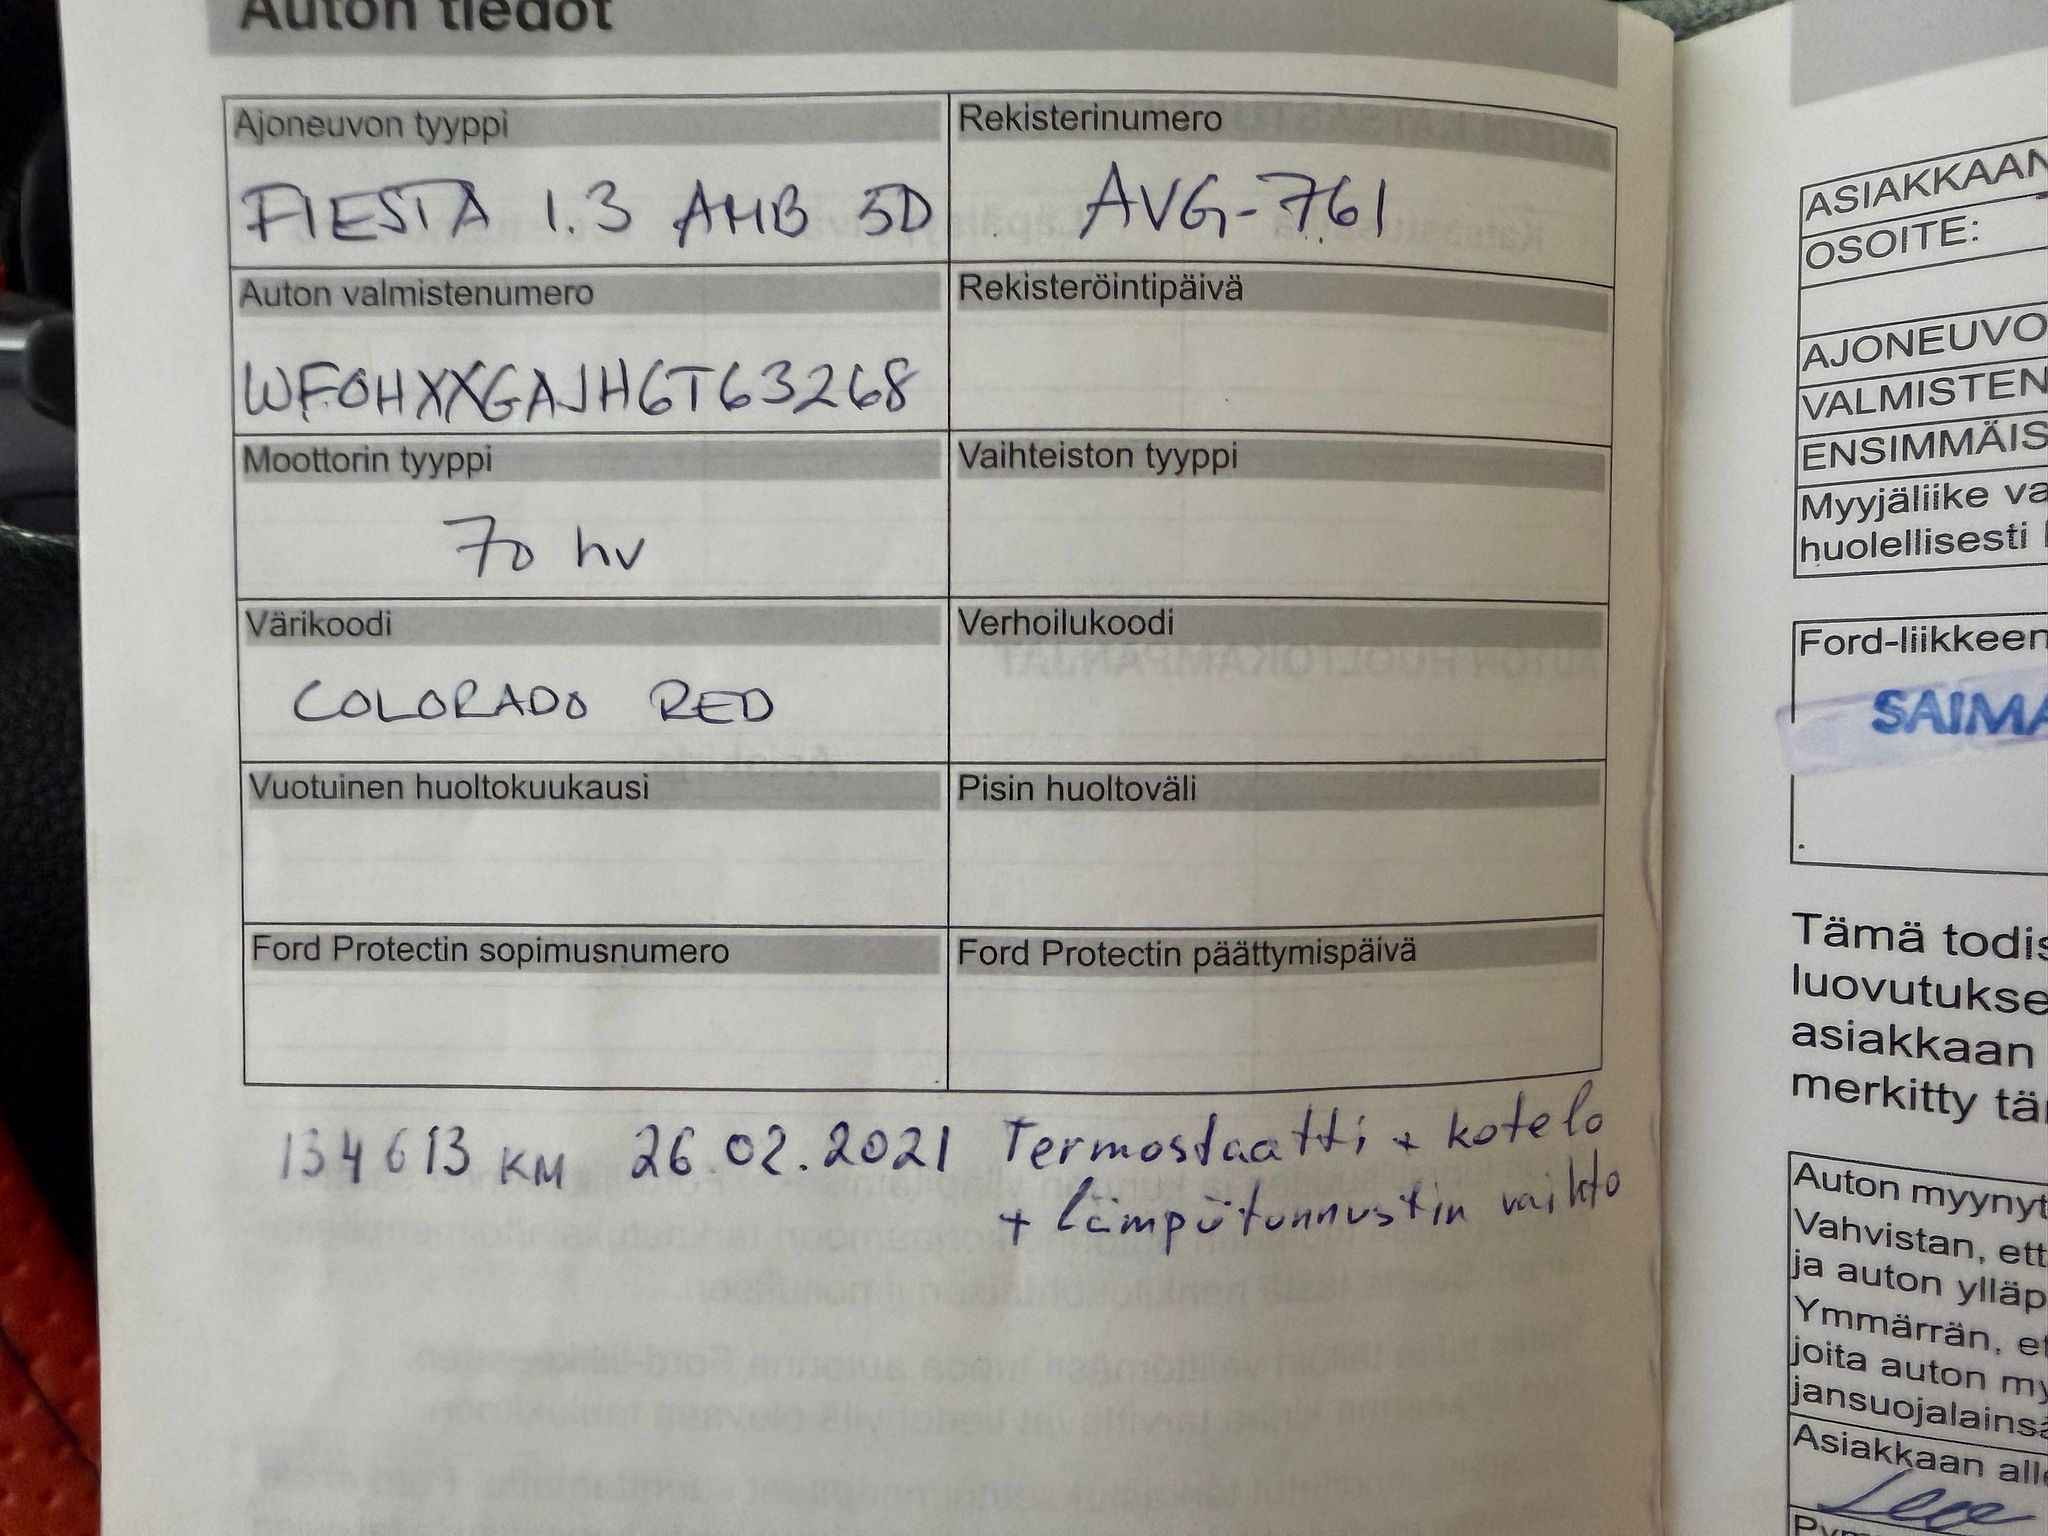 Auton tiedot
Ajoneuvon tyyppi
FIESTA 1.3 AMB 5D
Rekisterinumero
AVG-761
Auton valmistenumero
WF0HXXGAJH6T63268
Rekisteröintipäivä
Moottorin tyyppi
70 hv
Vaihteiston tyyppi
Värikoodi
COLORADO RED
Verhoilukoodi
Vuotuinen huoltokuukausi
Pisin huoltoväli
Ford Protectin sopimusnumero
Ford Protectin päättymispäivä
134613 KM 26.02.2021 Termostaatti + kotelo
+ lämpötunnustin vaihto
ASIAKKAAN
OSOITE:
AJONEUVO
VALMISTEN
ENSIMMÄIS
Myyjäliike va
huolellisesti
Ford-liikkeen
SAIMA
Tämä todis
luovutukse
asiakkaan
merkitty tä
Auton myynyt
Vahvistan, ett
ja auton ylläp
Ymmärrän, et
joita auton my
jansuojalainsä
Asiakkaan alle